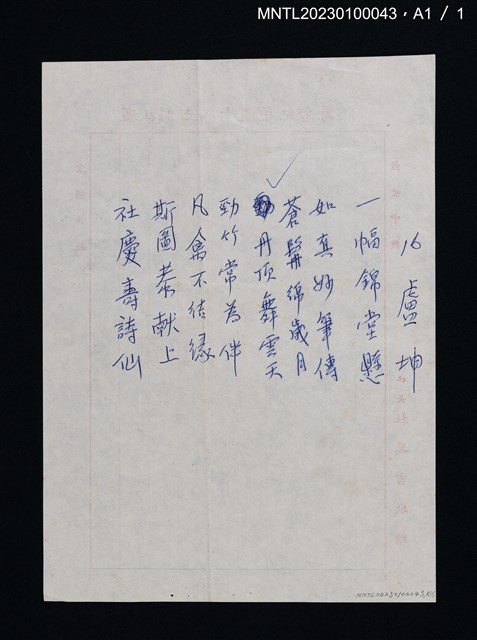 MNTL20230100043，A1 / 1
16 盧坤
一幅錦堂懸
如真妙筆傳
蒼髯綿歲月
丹頂舞雲天
勁竹常為伴
凡禽不結緣
斯圖恭献上
社慶壽詩仙
MNTL20230100043,A1/1